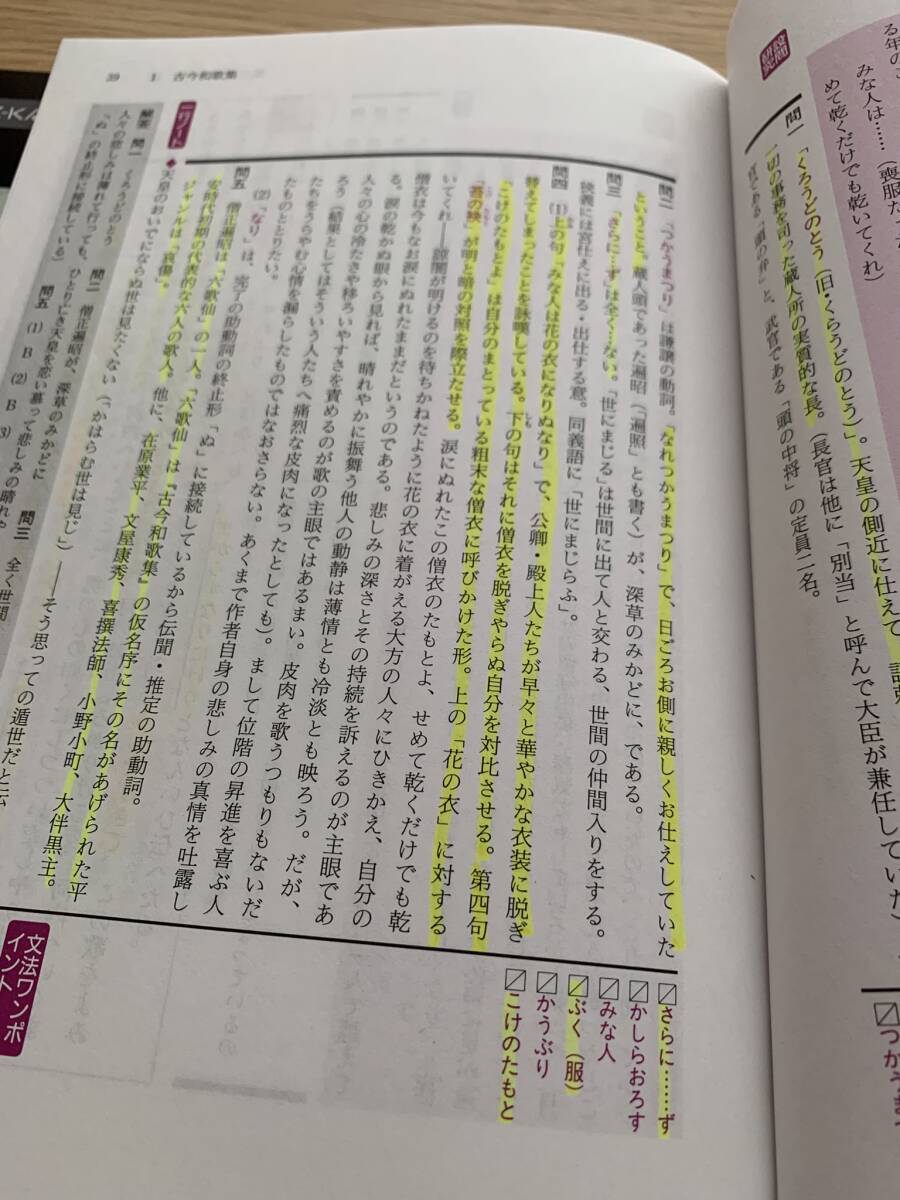 る年のこ
みな人は……（喪服だ
めて乾くだけでも乾いてくれ）
問一 「くろうどのとう（旧・くらうどのとう）」。天皇の側近に仕えて、
一切の事務を司った蔵人所の実質的な長。（長官は他に「別当」と呼んで大臣が兼任していた）
官である「頭の弁」と、武官である「頭の中将」の定員二名。
39 1 古今和歌集
問二 「つかうまつり」は謙譲の動詞。「なれつかうまつり」で、日ごろお側に親しくお仕えしていた
ということ。蔵人頭であった遍昭（「遍照」とも書く）が、深草のみかどに、である。
問三 「さらに…ず」は全く…ない。「世にまじる」は世間に出て人と交わる、世間の仲間入りをする。
狭義には宮仕えに出る・出仕する意。同義語に「世にまじらふ」。
問四 (1)上の句「みな人は花の衣になりぬなり」で、公卿・殿上人たちが早々と華やかな衣装に脱ぎ
替えてしまったことを詠嘆している。下の句はそれに僧衣を脱ぎやらぬ自分を対比させる。第四句
「こけのたもとよ」は自分のまとっている粗末な僧衣に呼びかけた形。上の「花の衣」に対する
「苔の袂」が明と暗の対照を際立たせる。涙にぬれたこの僧衣のたもとよ、せめて乾くだけでも乾
いてくれ――諒闇が明けるのを待ちかねたように花の衣に着がえる大方の人々にひきかえ、自分の
僧衣は今もなお涙にぬれたままだというのである。悲しみの深さとその持続を訴えるのが主眼であ
る。涙の乾かぬ眼から見れば、晴れやかに振舞う他人の動静は薄情とも冷淡とも映ろう。だが、
人々の心の冷たさや移ろいやすさを責めるのが歌の主眼ではあるまい。皮肉を歌うつもりもないだ
ろう（結果としてはそういう人たちへ痛烈な皮肉になったとしても）。まして位階の昇進を喜ぶ人
たちをうらやむ心情を漏らしたものではなおさらない。あくまで作者自身の悲しみの真情を吐露し
たものととりたい。
(2)「なり」は、完了の助動詞の終止形「ぬ」に接続しているから伝聞・推定の助動詞。
問五 僧正遍昭は、「六歌仙」の一人。「六歌仙」は『古今和歌集』の仮名序にその名があげられた平
安時代初期の代表的な六人の歌人。他に、在原業平、文屋康秀、喜撰法師、小野小町、大伴黒主。
ジャンルは「哀傷」。
◆天皇のおいでにならぬ世は見たくない（「かはらむ世は見じ」）――そう思っての遁世だと伝
解答 問一 くろうどのとう 問二 僧正遍昭が、深草のみかどに 問三 全く世間
人々の悲しみは薄れて行っても、ひとり亡き天皇を恋い慕って悲しみの晴れや
「ぬ」の終止形に接続している） 問五 (1) B (2) B
さらに……ず
かしらおろす
みな人
ぶく（服）
かうぶり
こけのたもと
文法ワンポ
イント